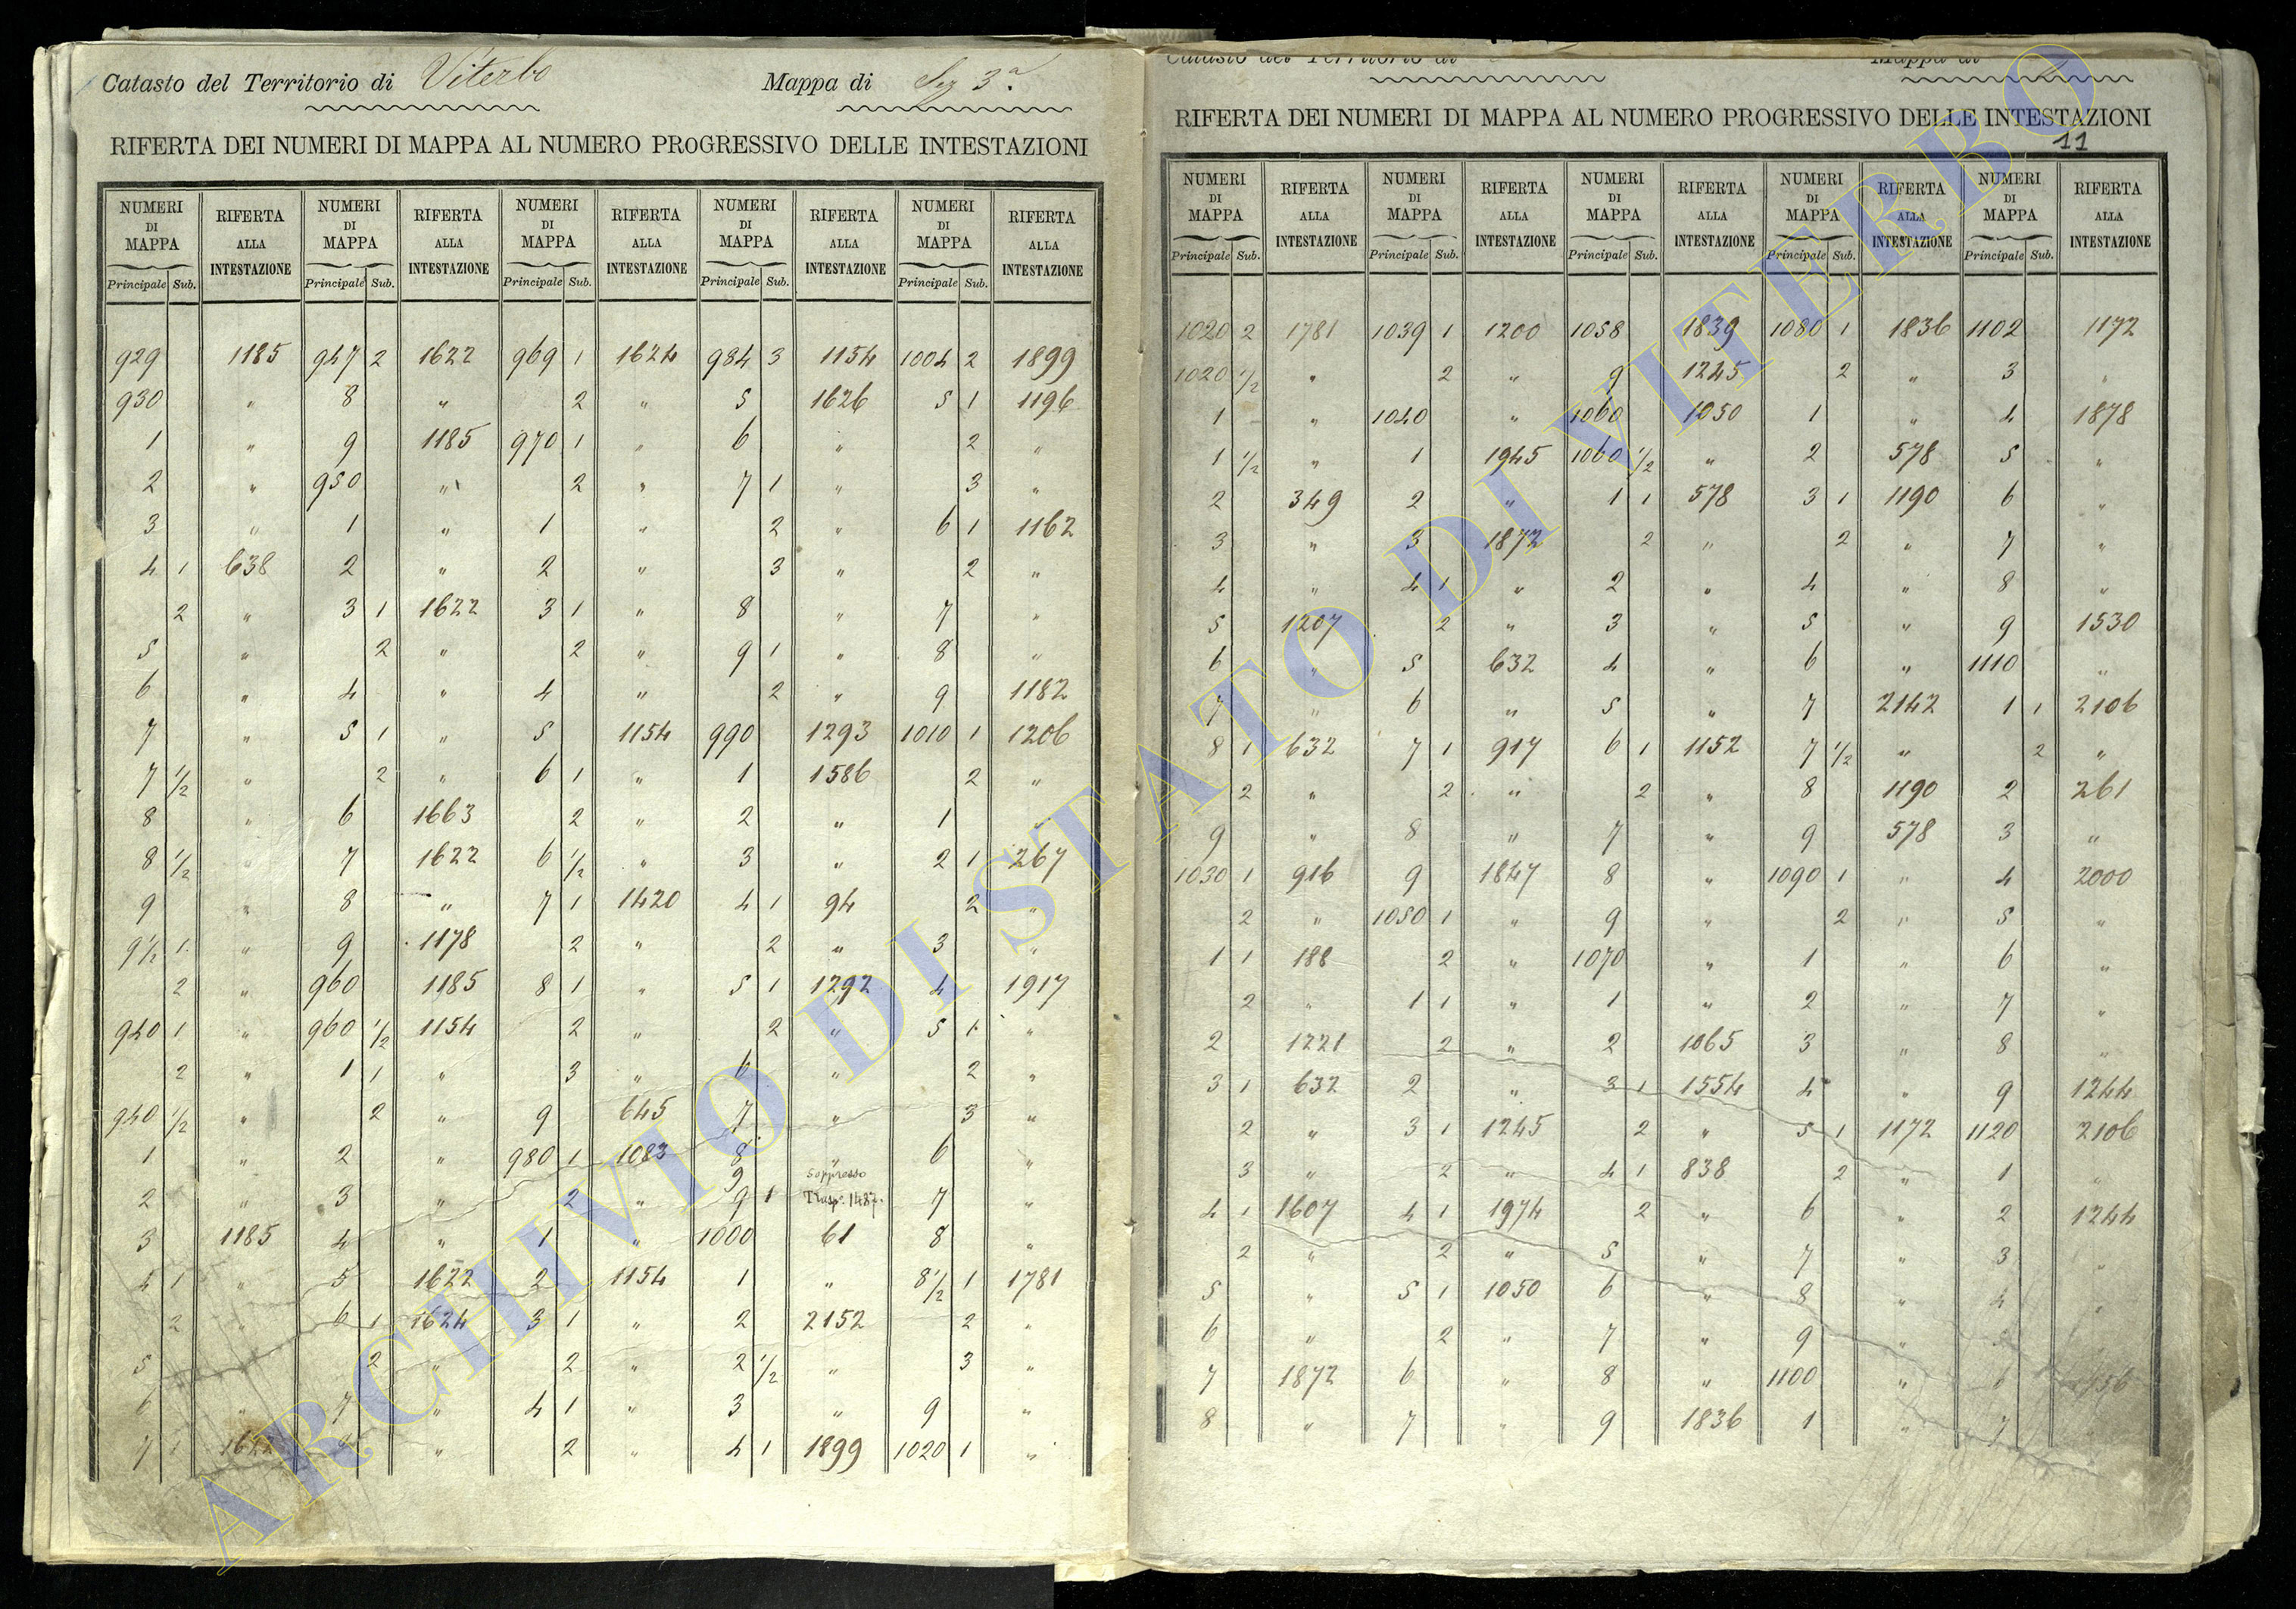 Catasto del Territorio di Viterbo Mappa di Sez 3ª.
RIFERTA DEI NUMERI DI MAPPA AL NUMERO PROGRESSIVO DELLE INTESTAZIONI
NUMERI DI MAPPA RIFERTA ALLA INTESTAZIONE NUMERI DI MAPPA RIFERTA ALLA INTESTAZIONE NUMERI DI MAPPA RIFERTA ALLA INTESTAZIONE NUMERI DI MAPPA RIFERTA ALLA INTESTAZIONE NUMERI DI MAPPA RIFERTA ALLA INTESTAZIONE
Principale Sub. Principale Sub. Principale Sub. Principale Sub. Principale Sub.
929 1185 947 2 1622 969 1 1624 984 3 1154 1004 2 1899
930 " 8 " 2 " 5 1626 5 1 1196
1 " 9 1185 970 1 " 6 " 2 "
2 " 950 " 2 " 7 1 " 3 "
3 " 1 " 1 " 2 " 6 1 1162
4 1 638 2 " 2 " 3 " 2 "
2 " 3 1 1622 3 1 " 8 " 7 "
5 " 2 " 2 " 9 1 " 8 "
6 " 4 " 4 " 2 " 9 1182
7 " 5 1 " 5 1154 990 1293 1010 1 1206
7 1/2 " 2 " 6 1 " 1 1586 2 "
8 " 6 1663 2 " 2 " 1 "
8 1/2 " 7 1622 6 1/2 " 3 " 2 1 267
9 " 8 " 7 1 1420 4 1 94 2 "
9 1/2 1 " 9 1178 2 " 2 " 3 "
2 " 960 1185 8 1 " 5 1 1292 4 1917
940 1 " 960 1/2 1154 2 " 2 " 5 1 "
2 " 1 1 " 3 " 6 " 2 "
940 1/2 " 2 " 9 645 7 " 3 "
1 " 2 " 980 1 1083 8 " 6 "
9 Soppresso
2 " 3 " 2 " 9 1 Trasp. 1487. 7 "
3 1185 4 " 1 " 1000 61 8 "
4 1 " 5 1622 2 1154 1 " 8 1/2 1 1781
2 " 6 1 1624 3 1 " 2 2152 2 "
5 2 " 2 " 2 1/2 " 3 "
6 " 7 " 4 1 " 3 " 9 "
7 1 1622 " 2 " 4 1 1899 1020 1 "
Catasto del Territorio di Mappa di
RIFERTA DEI NUMERI DI MAPPA AL NUMERO PROGRESSIVO DELLE INTESTAZIONI
11
NUMERI DI MAPPA RIFERTA ALLA INTESTAZIONE NUMERI DI MAPPA RIFERTA ALLA INTESTAZIONE NUMERI DI MAPPA RIFERTA ALLA INTESTAZIONE NUMERI DI MAPPA RIFERTA ALLA INTESTAZIONE NUMERI DI MAPPA RIFERTA ALLA INTESTAZIONE
Principale Sub. Principale Sub. Principale Sub. Principale Sub. Principale Sub.
1020 2 1781 1039 1 1200 1058 1839 1080 1 1836 1102 1172
1020 1/2 " 2 " 9 1245 2 " 3 "
1 " 1040 " 1060 1050 1 " 4 1878
1 1/2 " 1 1945 1060 1/2 " 2 578 5 "
2 349 2 " 1 1 578 3 1 1190 6 "
3 " 3 1872 2 " 2 " 7 "
4 " 4 1 " 2 " 4 " 8 "
5 1207 2 " 3 " 5 " 9 1530
6 " 5 632 4 " 6 " 1110 "
7 " 6 " 5 " 7 2142 1 1 2106
8 1 632 7 1 917 6 1 1152 7 1/2 " 2 "
2 " 2 " 2 " 8 1190 2 261
9 " 8 " 7 " 9 578 3 "
1030 1 916 9 1847 8 " 1090 1 " 4 2000
2 " 1050 1 " 9 " 2 " 5 "
1 1 188 2 " 1070 " 1 " 6 "
2 " 1 1 " 1 " 2 " 7 "
2 1221 2 " 2 1065 3 " 8 "
3 1 632 2 " 3 1 1554 4 " 9 1244
2 " 3 1 1245 2 " 5 1 1172 1120 2106
3 " 2 " 4 1 838 2 " 1 "
4 1 1607 4 1 1974 2 " 6 " 2 1244
2 " 2 " 5 " 7 " 3 "
5 " 5 1 1050 6 " 8 " 4 "
6 " 2 " 7 " 9 "
7 1872 6 " 8 " 1100 " 6
8 " 7 " 9 1836 1 " 7
ARCHIVIO DI STATO DI VITERBO